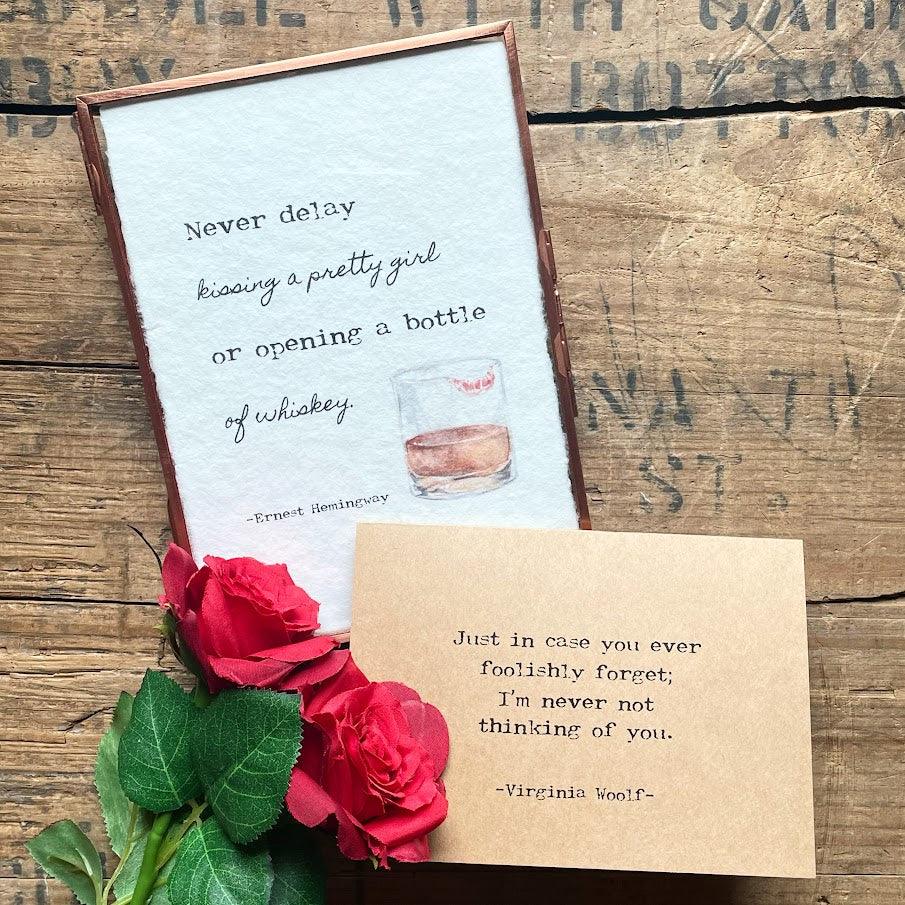 Never delay
kissing a pretty girl
or opening a bottle
of whiskey.
-Ernest Hemingway
Just in case you ever
foolishly forget;
I'm never not
thinking of you.
-Virginia Woolf-
ST.